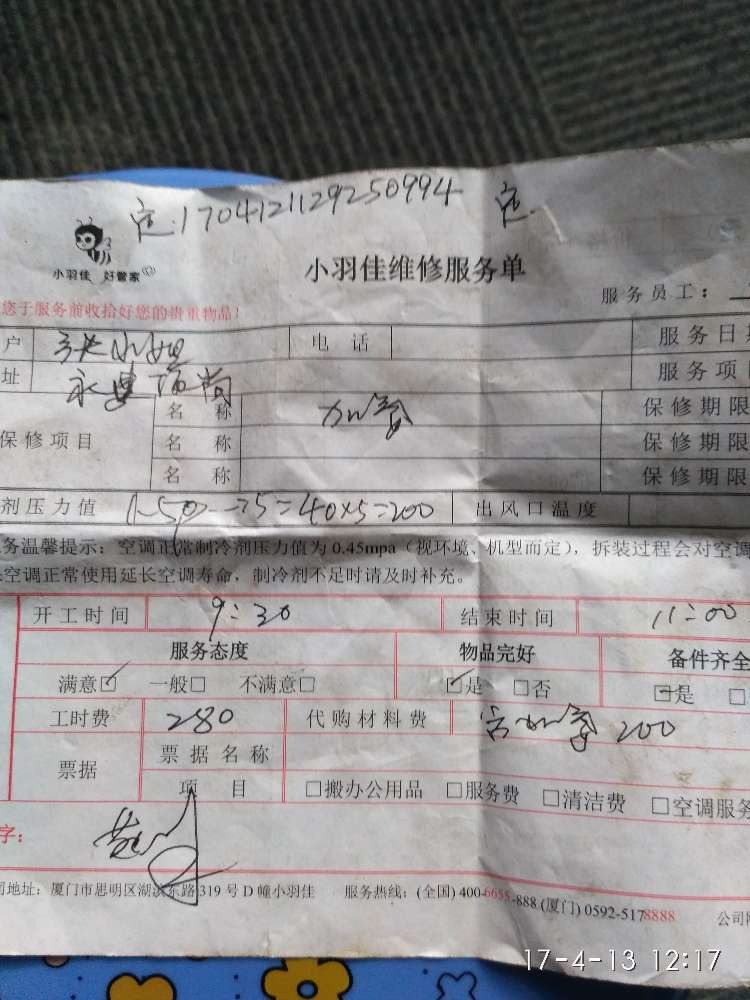 定.1704121129250994 定.
小羽佳 好管家
小羽佳维修服务单
服务员工：
您于服务前收拾好您的贵重物品！
户 张小姐 电 话 服务日期
址 永 服务项
名 称 加氟 保修期限
保修项目 名 称 保修期限
名 称 保修期限
剂压力值 75=40×5=200 出风口温度
务温馨提示：空调正常制冷剂压力值为 0.45mpa（视环境、机型而定），拆装过程会对空调
空调正常使用延长空调寿命，制冷剂不足时请及时补充。
开工时间 9:30 结束时间 11:00
服务态度 物品完好 备件齐全
满意☑ 一般□ 不满意□ ☑是 □否 ☑是 □
工时费 280 代购材料费 含加氟 200
票据 票据名称
项 目 □搬办公用品 □服务费 □清洁费 □空调服务
字：
司地址：厦门市思明区湖滨东路 319 号 D 幢小羽佳 服务热线：(全国) 400-6655-888 (厦门) 0592-5178888 公司网
17-4-13 12:17